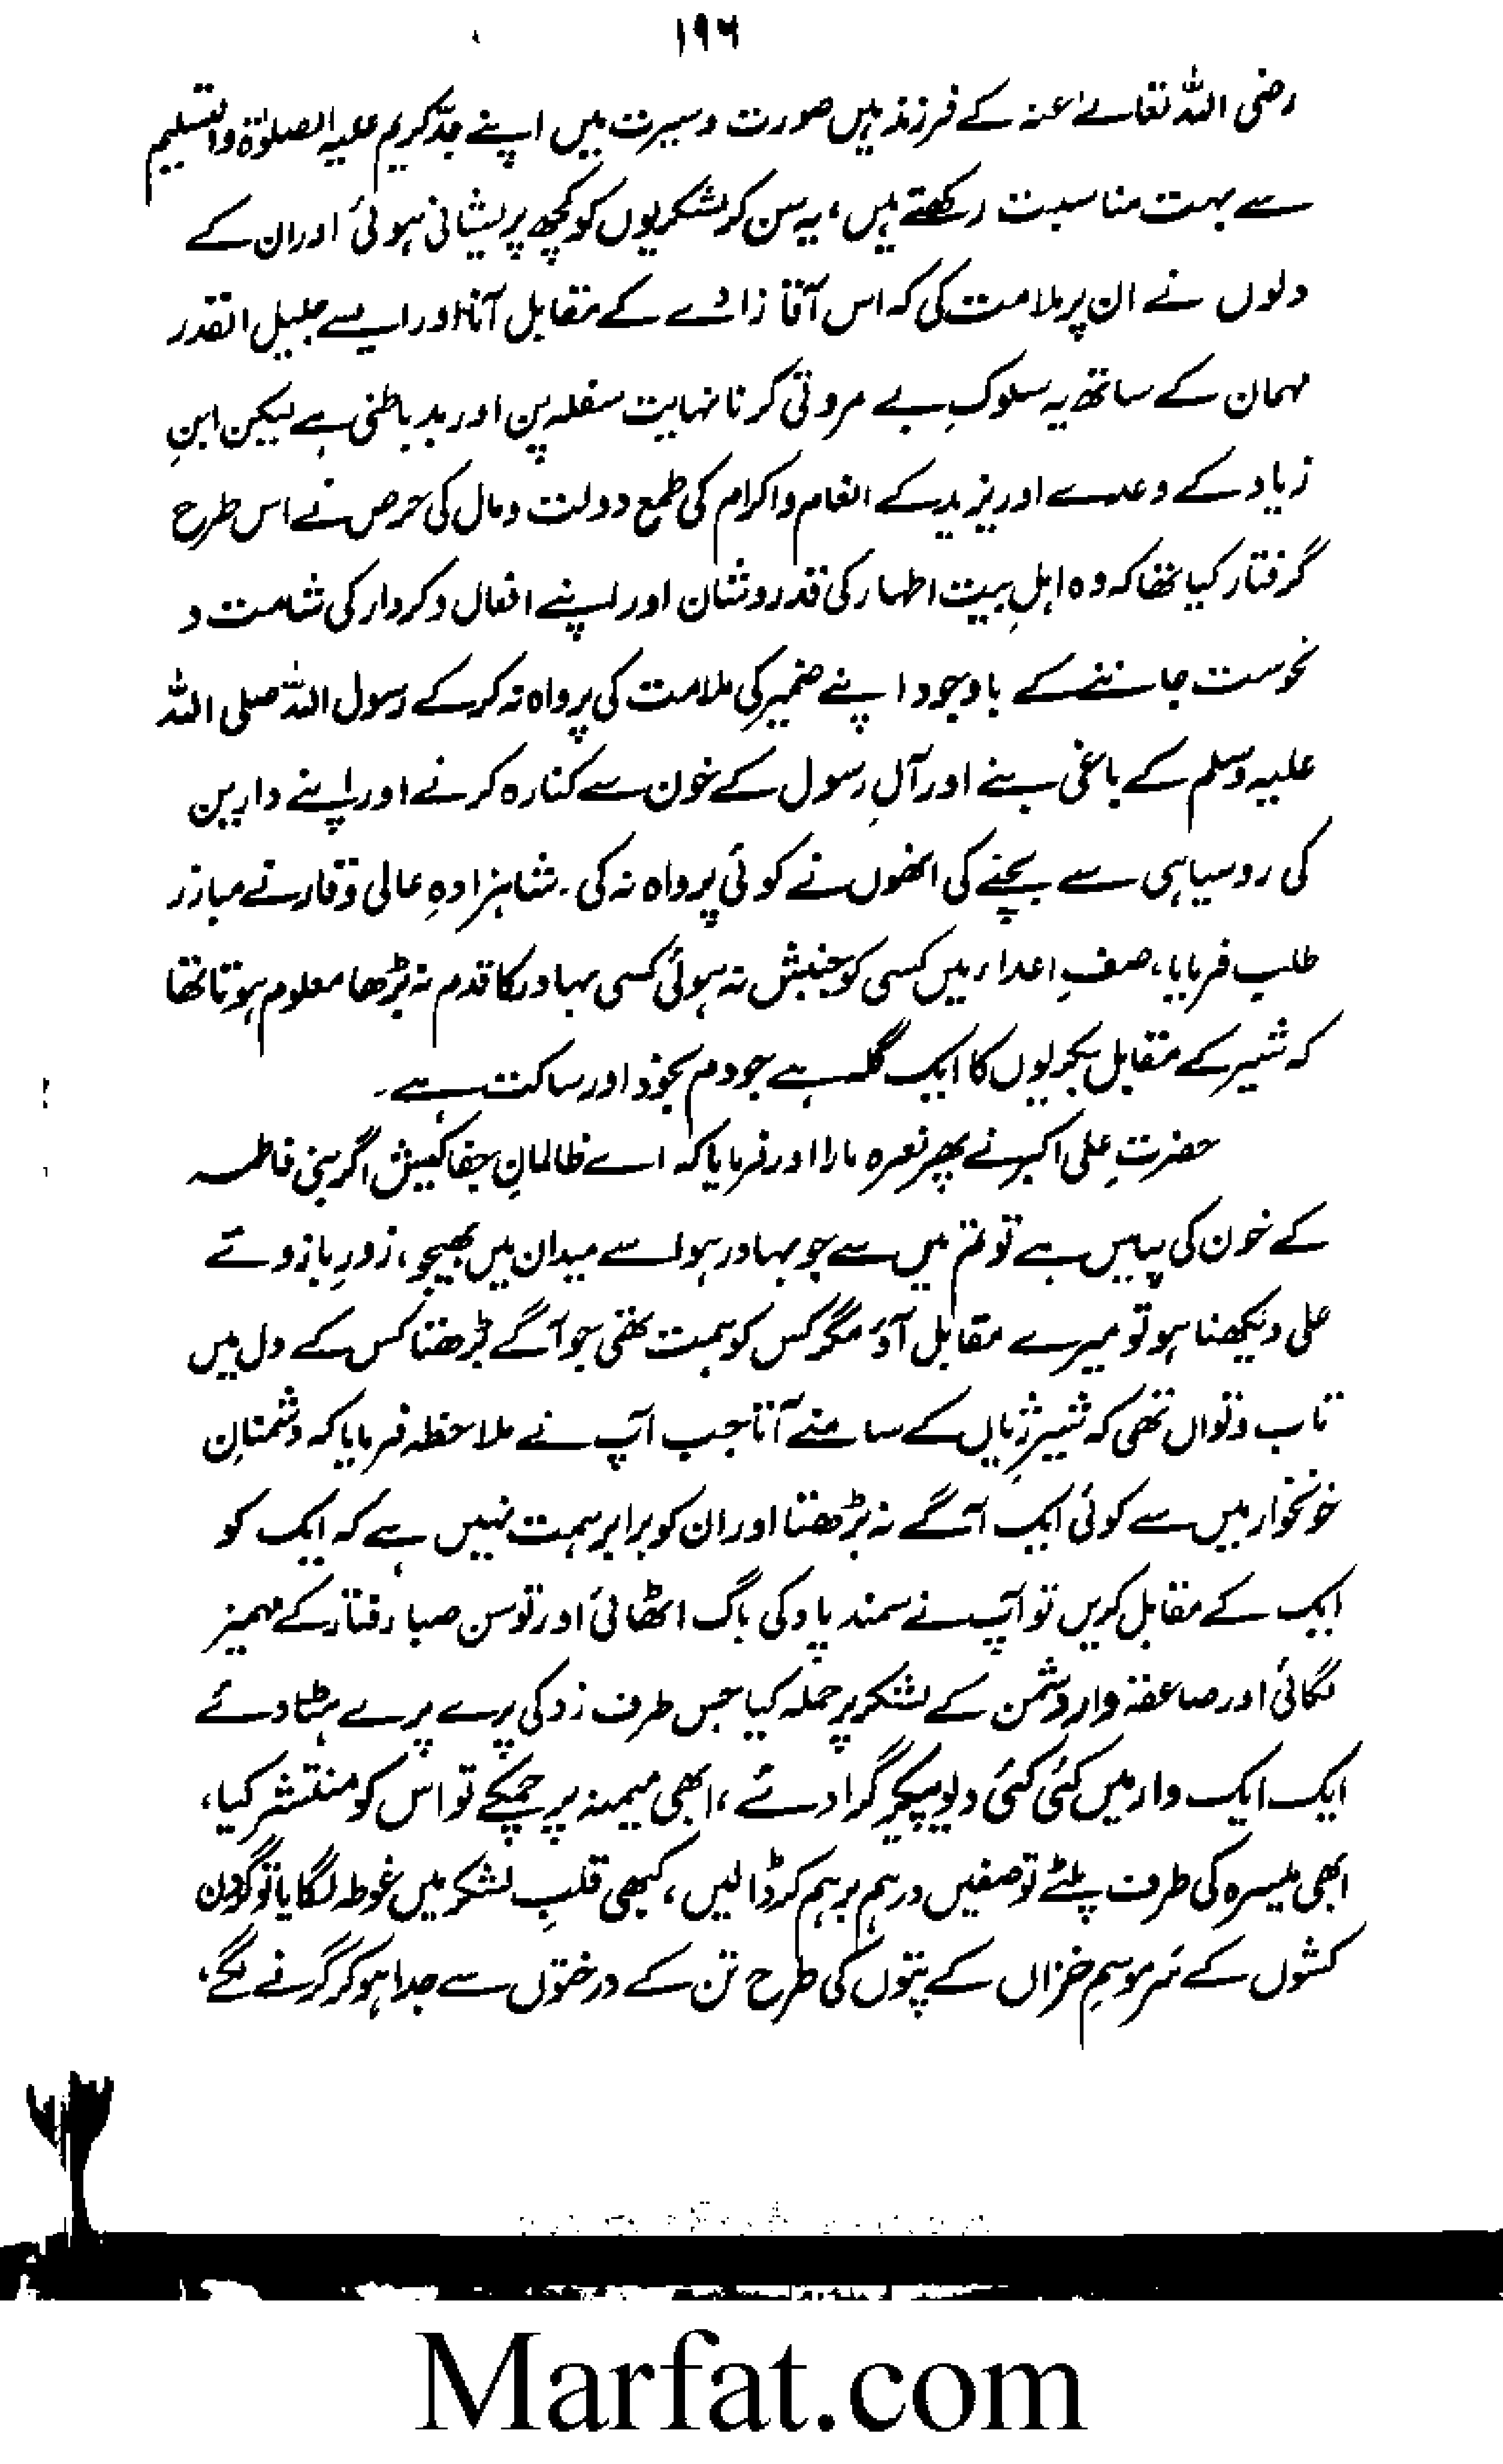 ۱۹۶
رضی اللہ تعالےٰ عنہ کے فرزند ہیں صورت و سیرت میں اپنے جدّ کریم علیہ الصلوٰۃ والتسلیم
سے بہت مناسبت رکھتے ہیں، یہ سن کر لشکریوں کو کچھ پریشانی ہوئی اور ان کے
دلوں نے ان پر ملامت کی کہ اس آقا زادے کے مقابل آنا اور ایسے جلیل القدر
مہمان کے ساتھ یہ سلوکِ بے مروتی کرنا نہایت سفلہ پن اور بد باطنی ہے لیکن ابنِ
زیاد کے وعدے اور یزید کے انعام و اکرام کی طمع دولت و مال کی حرص نے اس طرح
گرفتار کیا تھا کہ وہ اہلِ بیت اطہار کی قدر و شان اور اپنے افعال و کردار کی شامت و
نحوست جاننے کے باوجود اپنے ضمیر کی ملامت کی پرواہ نہ کر کے رسول اللہ صلی اللہ
علیہ وسلم کے باغی بنے اور آلِ رسول کے خون سے کنارہ کرنے اور اپنے دارین
کی روسیاہی سے بچنے کی انھوں نے کوئی پرواہ نہ کی۔ شاہزادہِ عالی وقار نے مبارز
طلب فرمایا، صفِ اعداء میں کسی کو جنبش نہ ہوئی کسی بہادر کا قدم نہ بڑھا معلوم ہوتا تھا
کہ شیر کے مقابل بکریوں کا ایک گلہ ہے جو دم بخود اور ساکت ہے۔
حضرتِ علی اکبر نے پھر نعرہ مارا اور فرمایا کہ اے ظالمانِ جفا کیش اگر بنی فاطمہ
کے خون کی پیاس ہے تو تم میں سے جو بہادر ہو اسے میدان میں بھیجو، زورِ بازوئے
علی دیکھنا ہو تو میرے مقابل آؤ مگر کس کو ہمت تھی جو آگے بڑھتا کس کے دل میں
تاب و تواں تھی کہ شیرِ ژیاں کے سامنے آتا جب آپ نے ملاحظہ فرمایا کہ دشمنانِ
خونخوار میں سے کوئی ایک آگے نہ بڑھتا اور ان کو برابر ہمت نہیں ہے کہ ایک کو
ایک کے مقابل کریں تو آپ نے سمند باد کی باگ اٹھائی اور توسن صبا رفتار کے مہمیز
لگائی اور صاعقہ وار دشمن کے لشکر پر حملہ کیا جس طرف زد کی پرے پرے ہٹا دئے
ایک ایک وار میں کئی کئی دیو پیکر گرا دئے، ابھی میمنہ پر چمکے تو اس کو منتشر کیا،
ابھی میسرہ کی طرف پلٹے تو صفیں درہم برہم کر ڈالیں، کبھی قلبِ لشکر میں غوطہ لگایا تو گردن
کشوں کے سر موسمِ خزاں کے پتوں کی طرح تن کے درختوں سے جدا ہو کر گرنے لگے،
Marfat.com